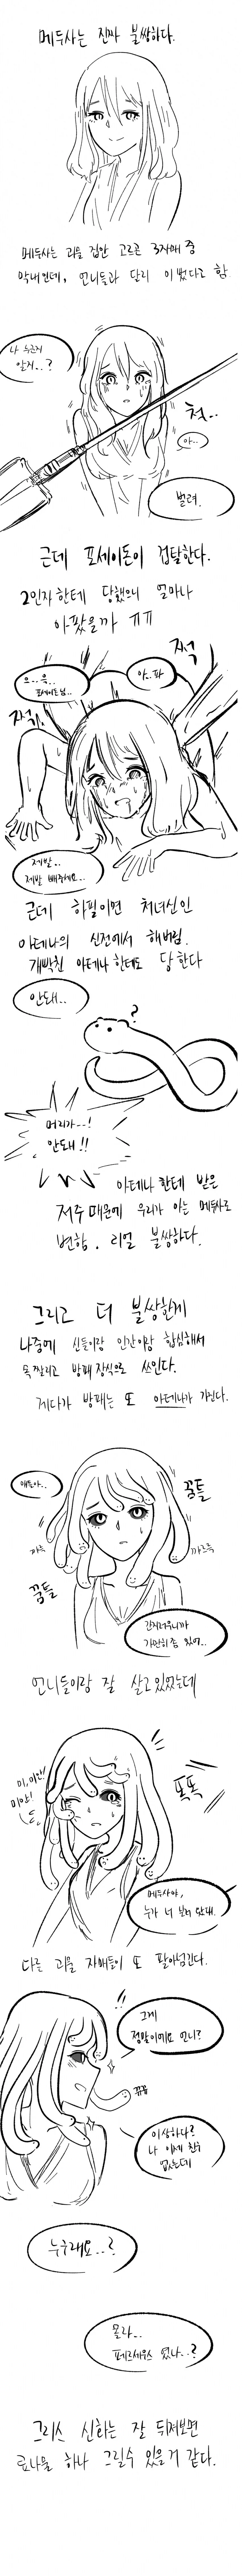 메두사는 진짜 불쌍하다.
메두사는 괴물 집안 고르곤 3자매 중
막내인데, 언니들과 달리 이뻤다고 함
나 누군지
알지..?
척..
아..
벌려.
근데 포세이돈이 겁탈한다.
2인자한테 당했으니 얼마나
아팠을까 ㅠㅠ
쩍
으..윽..
포세이돈님..
아..파
쩍
제발..
제발 빼주세요..
근데 하필이면 처녀신인
아테나의 신전에서 해버림.
개빡친 아테나한테도 당한다
안돼..
?
머리가--!
안돼!!
아테나한테 받은
저주 때문에 우리가 아는 메두사로
변함. 리얼 불쌍하다.
그리고 더 불쌍한게
나중에 신들이랑 인간이랑 합심해서
목 짤리고 방패 장식으로 쓰인다.
게다가 방패는 또 아테나가 가진다.
얘들아..
꿈틀
꿈틀
간지러우니까
가만히 좀 있어..
언니들이랑 잘 살고 있었는데
미,미안!!
미안!
똑똑
메두사야,
누가 너 보러 왔대.
다른 괴물 자매들이 또 팔아넘긴다.
!!
그게
정말이에요 언니?
뀨뀨
이상하다?
나 이제 친구
없는데
누구래요..?
몰라..
페르세우스 였나..?
그리스 신화는 잘 뒤져보면
료나물 하나 그릴수 있을거 같다.